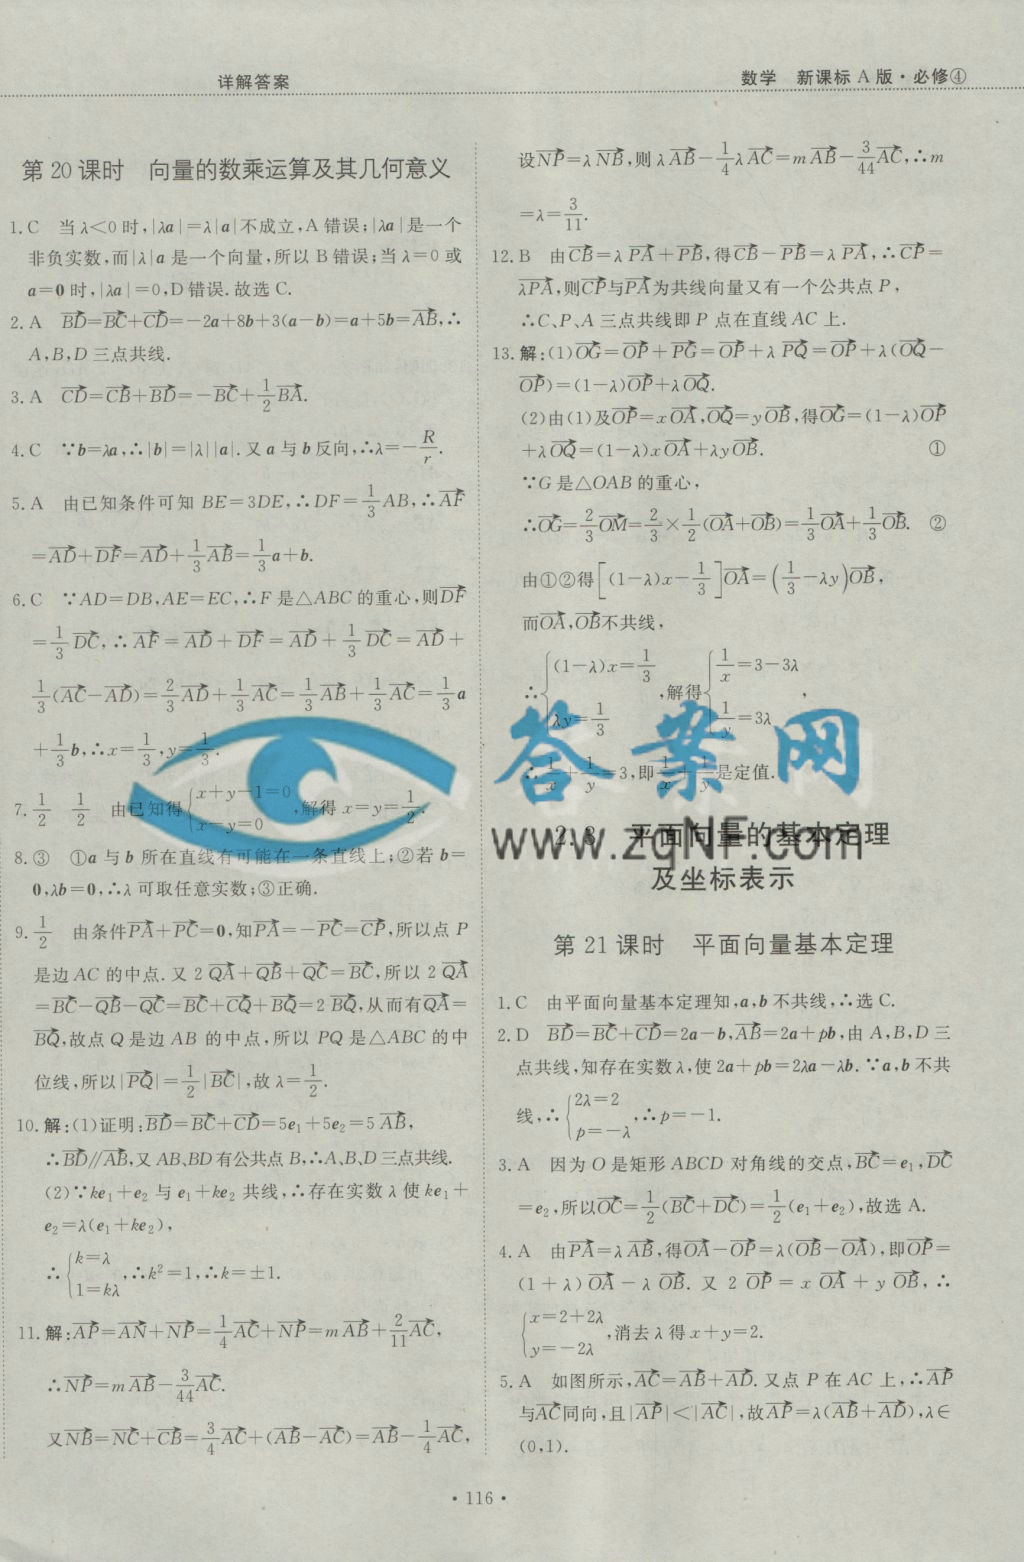 详解答案
数学 新课标 A 版·必修④
第 20 课时 向量的数乘运算及其几何意义
1. C 当 λ<0 时,|λa|=λ|a|不成立,A 错误;|λa|是一个
非负实数,而|λ|a 是一个向量,所以 B 错误;当 λ=0 或
a=0 时,|λa|=0,D 错误. 故选 C.
2. A BD→=BC→+CD→=-2a+8b+3(a-b)=a+5b=AB→,∴
A,B,D 三点共线.
3. A CD→=CB→+BD→=-BC→+1/2 BA→.
4. C ∵b=λa,∴|b|=|λ||a|. 又 a 与 b 反向,∴λ=-R/r.
5. A 由已知条件可知 BE=3DE,∴DF=1/3 AB,∴AF→
=AD→+DF→=AD→+1/3 AB→=1/3 a+b.
6. C ∵AD=DB,AE=EC,∴F 是△ABC 的重心,则DF→
=1/3 DC→,∴AF→=AD→+DF→=AD→+1/3 DC→=AD→+
1/3(AC→-AD→)=2/3 AD→+1/3 AC→=1/3 AB→+1/3 AC→=1/3 a
+1/3 b,∴x=1/3,y=1/3.
7. 1/2 1/2 由已知得{x+y-1=0 x-y=0,解得 x=y=1/2.
8. ③ ①a 与 b 所在直线有可能在一条直线上;②若 b=
0,λb=0,∴λ 可取任意实数;③正确.
9. 1/2 由条件PA→+PC→=0,知PA→=-PC→=CP→,所以点 P
是边 AC 的中点. 又 2QA→+QB→+QC→=BC→,所以 2QA→
=BC→-QB→-QC→=BC→+CQ→+BQ→=2BQ→,从而有QA→=
BQ→,故点 Q 是边 AB 的中点,所以 PQ 是△ABC 的中
位线,所以|PQ→|=1/2|BC→|,故 λ=1/2.
10. 解:(1)证明:BD→=BC→+CD→=5e₁+5e₂=5AB→,
∴BD→∥AB→,又 AB、BD 有公共点 B,∴A、B、D 三点共线.
(2)∵ke₁+e₂ 与 e₁+ke₂ 共线,∴存在实数 λ 使 ke₁+
e₂=λ(e₁+ke₂),
∴{k=λ 1=kλ,∴k²=1,∴k=±1.
11. 解:AP→=AN→+NP→=1/4 AC→+NP→=mAB→+2/11 AC→,
∴NP→=mAB→-3/44 AC→.
又NB→=NC→+CB→=3/4 AC→+(AB→-AC→)=AB→-1/4 AC→,
设NP→=λNB→,则 λAB→-1/4 λAC→=mAB→-3/44 AC→,∴m
=λ=3/11.
12. B 由CB→=λPA→+PB→,得CB→-PB→=λPA→,∴CP→=
λPA→,则CP→与PA→为共线向量又有一个公共点 P,
∴C、P、A 三点共线即 P 点在直线 AC 上.
13. 解:(1)OG→=OP→+PG→=OP→+λPQ→=OP→+λ(OQ→-
OP→)=(1-λ)OP→+λOQ→.
(2)由(1)及OP→=xOA→,OQ→=yOB→,得OG→=(1-λ)OP→
+λOQ→=(1-λ)xOA→+λyOB→. ①
∵G 是△OAB 的重心,
∴OG→=2/3 OM→=2/3×1/2(OA→+OB→)=1/3 OA→+1/3 OB→. ②
由①②得[(1-λ)x-1/3]OA→=(1/3-λy)OB→,
而OA→,OB→不共线,
∴{(1-λ)x=1/3 λy=1/3,解得{1/x=3-3λ 1/y=3λ,
∴1/x+1/y=3,即1/x+1/y是定值.
答案网
www.zqNF.com
2.3 平面向量的基本定理
及坐标表示
第 21 课时 平面向量基本定理
1. C 由平面向量基本定理知,a,b 不共线,∴选 C.
2. D BD→=BC→+CD→=2a-b,AB→=2a+pb,由 A,B,D 三
点共线,知存在实数 λ,使 2a+pb=2λa-λb. ∵a,b 不共
线,∴{2λ=2 p=-λ,∴p=-1.
3. A 因为 O 是矩形 ABCD 对角线的交点,BC→=e₁,DC→
=e₂,所以OC→=1/2(BC→+DC→)=1/2(e₁+e₂),故选 A.
4. A 由PA→=λAB→,得OA→-OP→=λ(OB→-OA→),即OP→=
(1+λ)OA→-λOB→. 又 2OP→=xOA→+yOB→,∴
{x=2+2λ y=-2λ,消去 λ 得 x+y=2.
5. A 如图所示,AC→=AB→+AD→. 又点 P 在 AC 上,∴AP→
与AC→同向,且|AP→|<|AC→|,故AP→=λ(AB→+AD→),λ∈
(0,1).
·116·